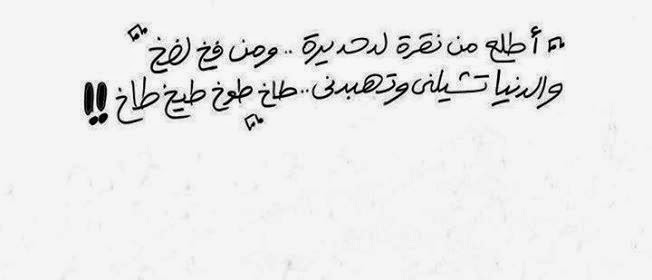 "أطلع من نقرة لدحديرة .. ومن فخ لفخ"
والدنيا تشيلنى وتهبدنى .. طاخ طوخ طيخ طاخ !!